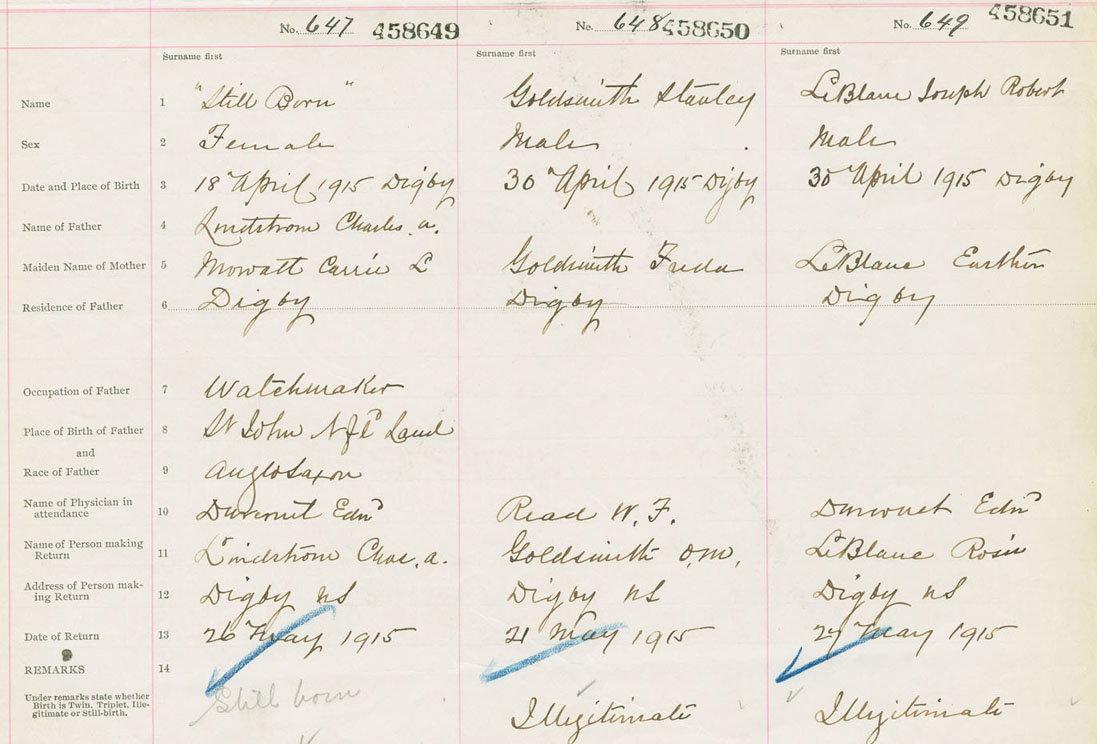 No. 647 458649 No. 648 458650 No. 649 458651
Surname first Surname first Surname first
Name 1 "Still Born" Goldsmith Stanley LeBlanc Joseph Robert
Sex 2 Female Male Male
Date and Place of Birth 3 18" April 1915 Digby 30" April 1915 Digby 30" April 1915 Digby
Name of Father 4 Lindstrom Charles. a.
Maiden Name of Mother 5 Mowatt Carrie L Goldsmith Freda LeBlanc
Residence of Father 6 Digby Digby Digby
Occupation of Father 7 Watchmaker
Place of Birth of Father 8 St John Nfld Land
and
Race of Father 9 Anglo Saxon
Name of Physician in
attendance 10 Edn Read W. F. Edn
Name of Person making
Return 11 Lindstrom Chas. a. Goldsmith O.M. LeBlanc Rosie
Address of Person mak-
ing Return 12 Digby NS Digby NS Digby NS
Date of Return 13 26 May 1915 21 May 1915 May 1915
REMARKS 14
Under remarks state whether
Birth is Twin, Triplet, Ille-
gitimate or Still-birth.
Still born Illegitimate Illegitimate